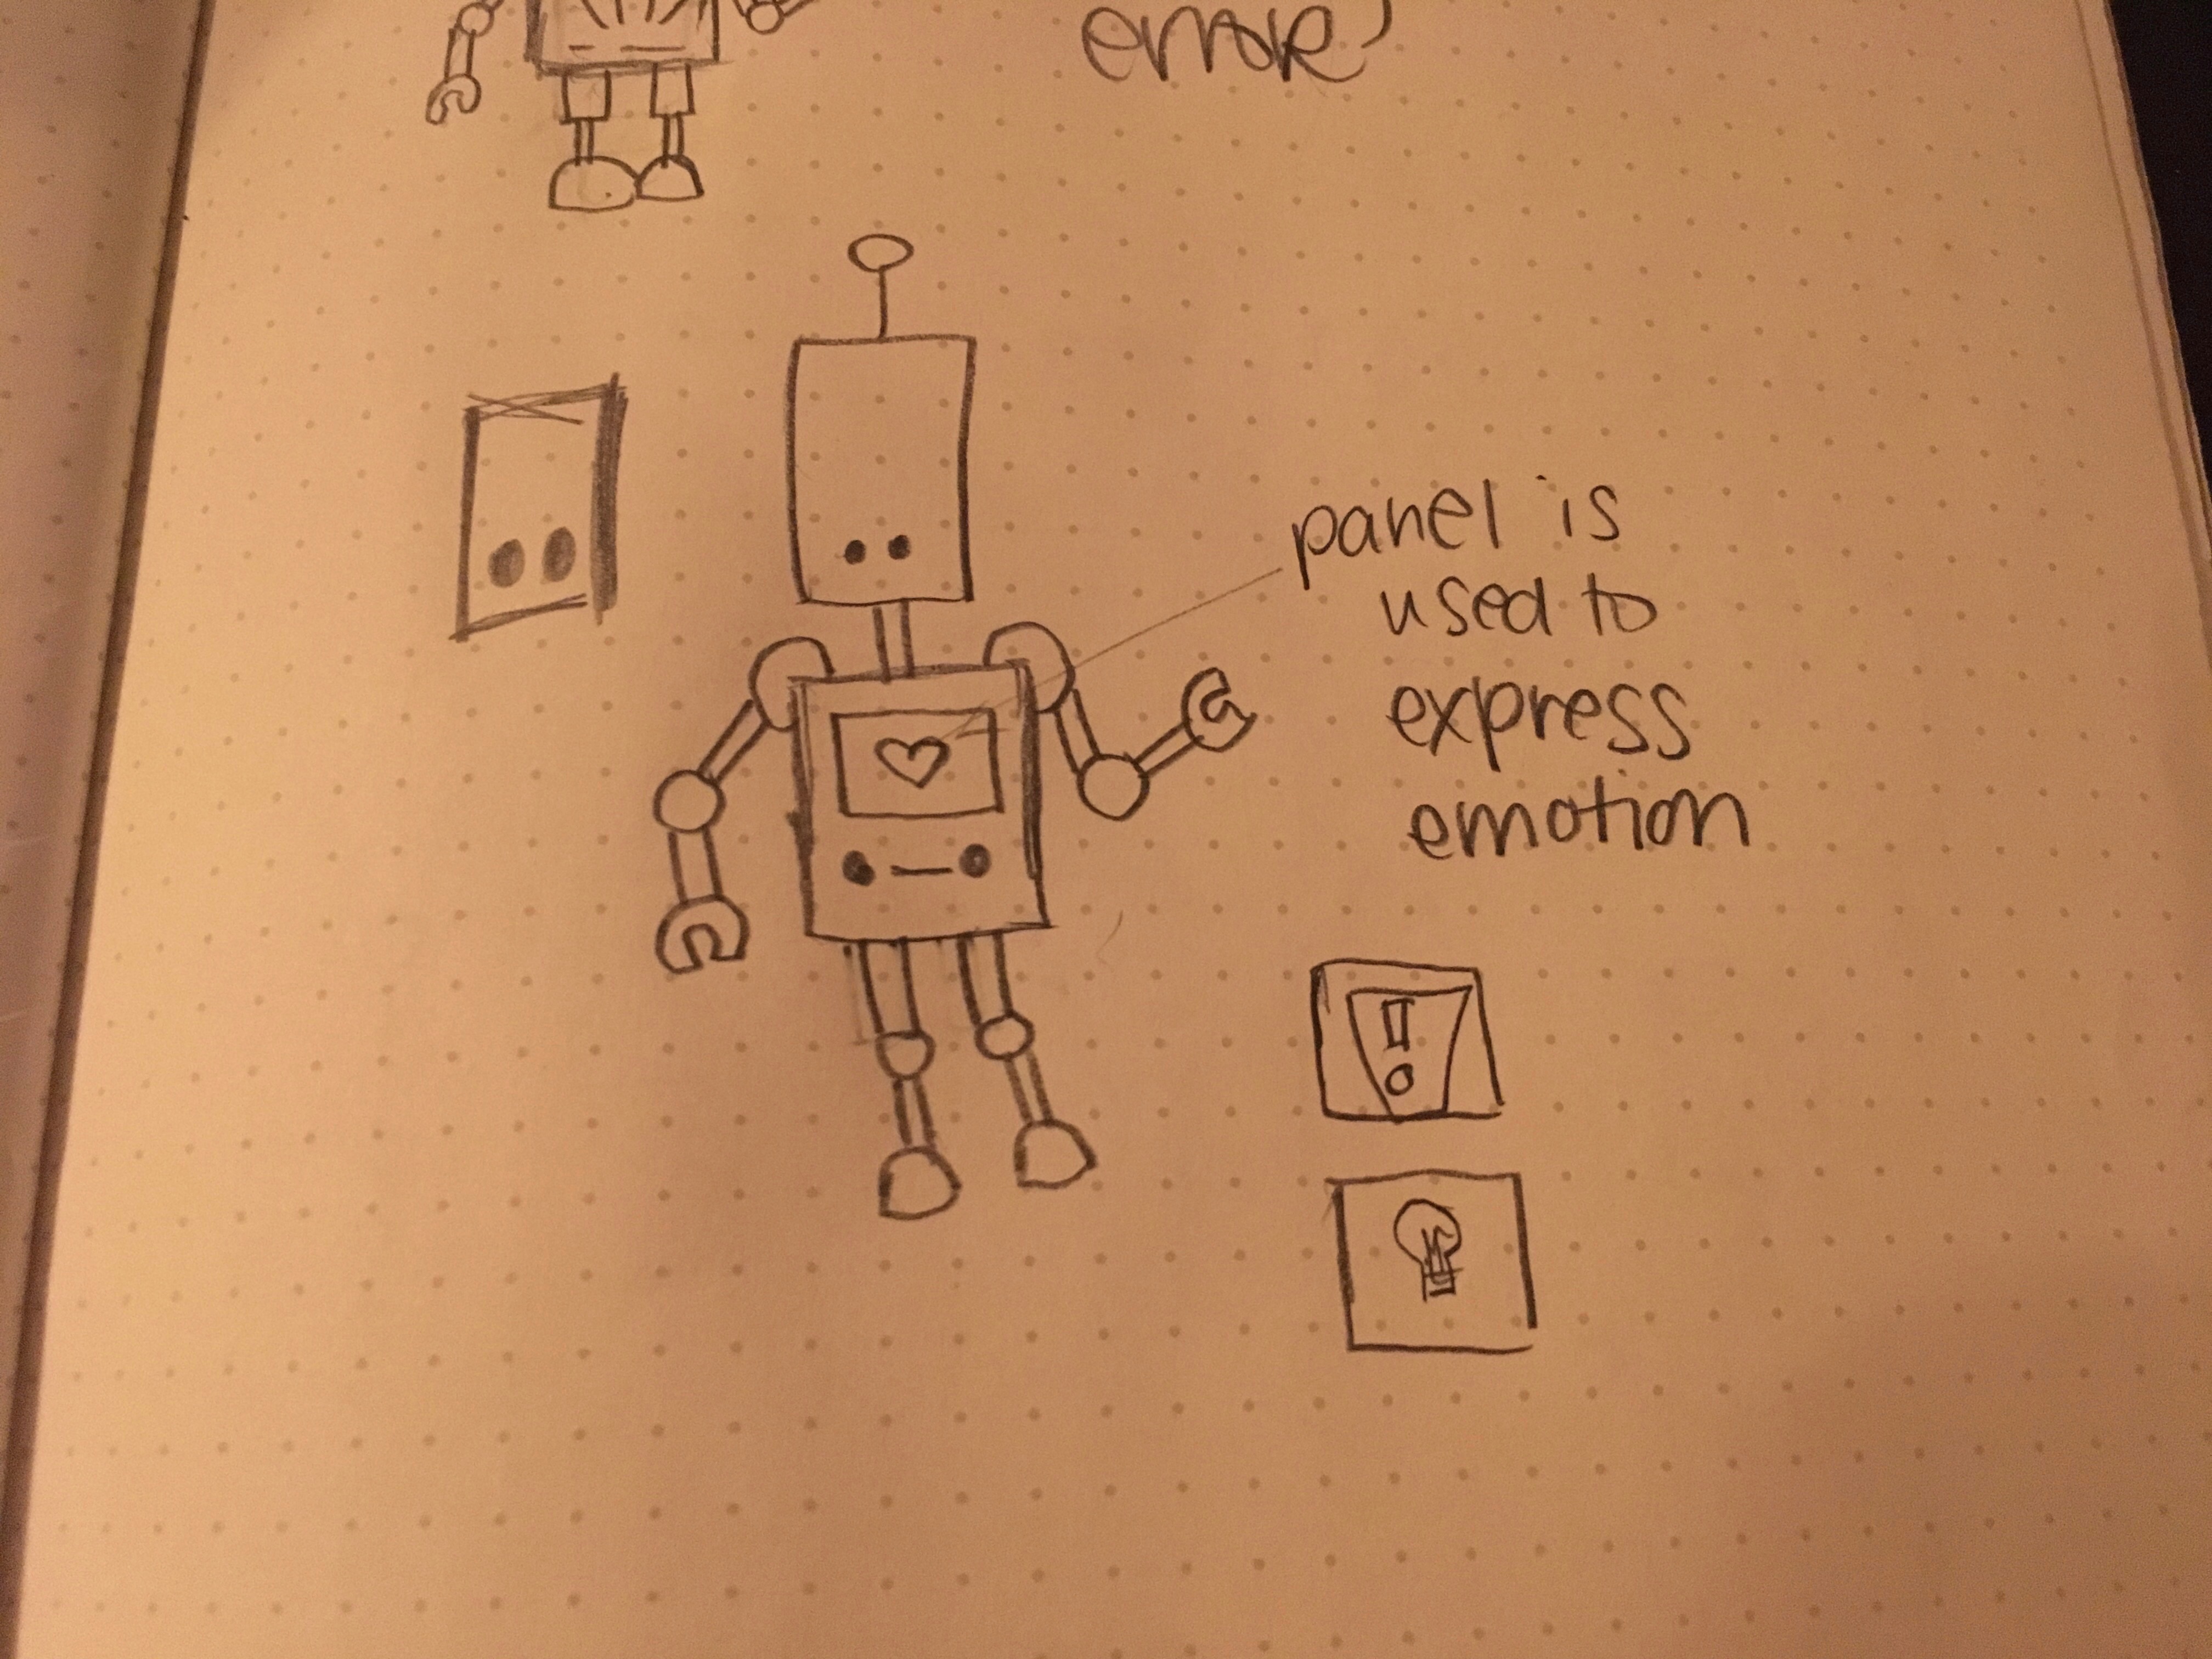 error)
panel is
used to
express
emotion
!